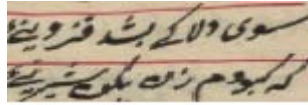 سوی دلاکے بشد قزوینئے
که کبودم زن بکن شیرینئے